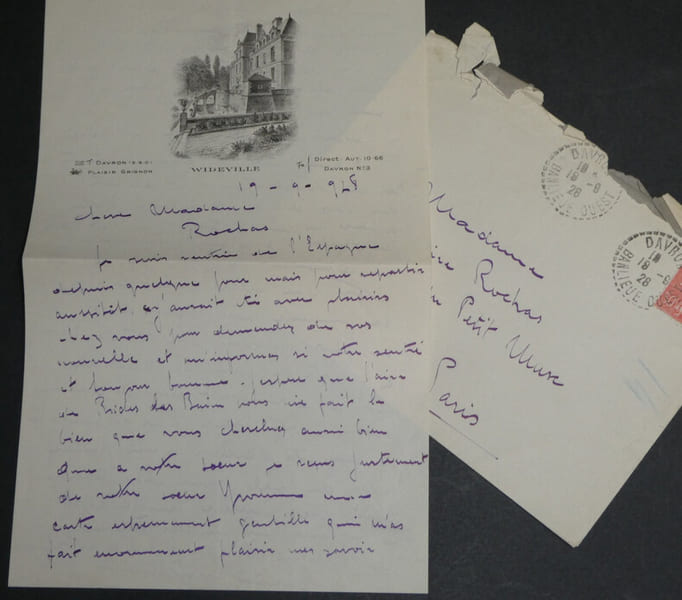 DAVRON (S.&.O)
PLAISIR GRIGNON
WIDEVILLE
Direct: AUT. 10-66
DAVRON Nº3
19-9-928
chere Madame
Rochas
Je suis rentrée de l'Espagne
depuis quelque jour mais pour repartir
aussitôt, j'aurait été avec plaisirs
chez vous pour demander de vos
nouvelle et m'informer si votre santé
et toujour bonne. J'espere que l'aire
de Brides les Bain vous aie fait le
bien que vous cherchez aussi bien
que a votre soeur je reçus justement
de votre soeur Yvonne une
carte extremement gentille qui m'as
fait enormement plaisir mes savoir
Madame
Rochas
Petit Musc
Paris
DAVRON
18 -9
28
BANLIEUE OUEST
DAVRO
18 -9
28
BANLIEUE O